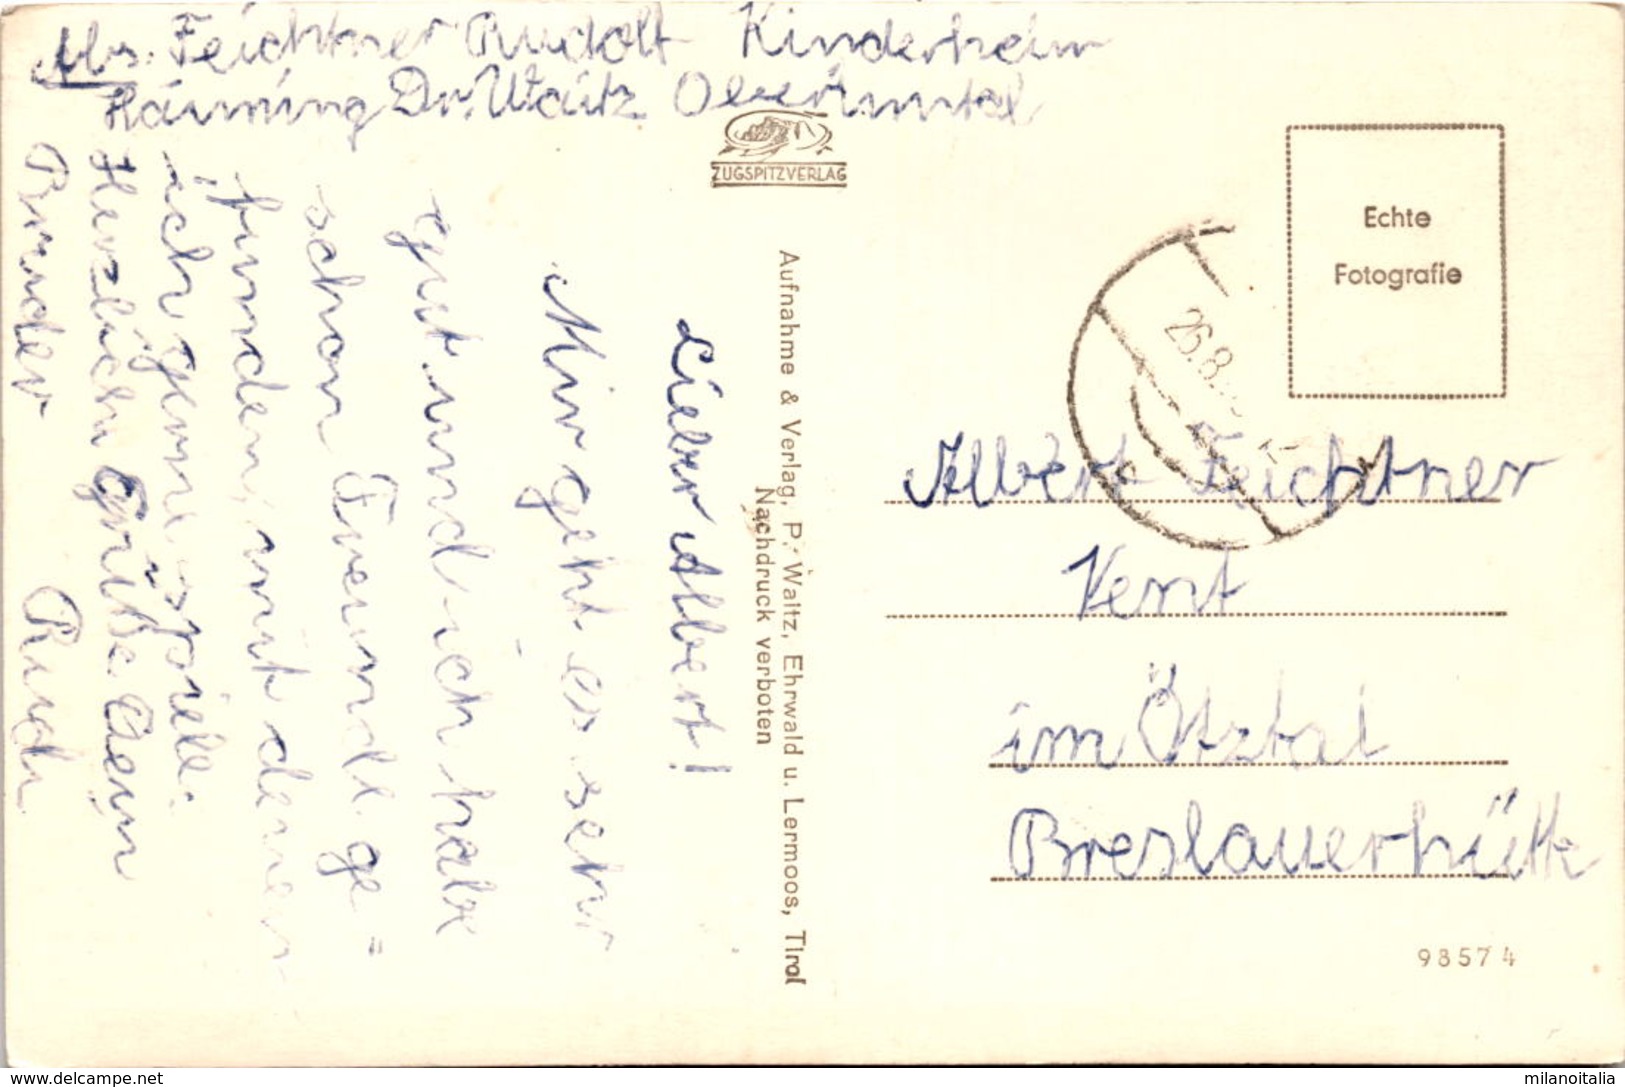 Abs. Feichtner Rudolf Kinderheim
Raiming Dr. Waitz Oberinntal
ZUGSPITZVERLAG
Echte
Fotografie
26.8.
Lieber Albert!
Mir geht es sehr
gut und ich habe
schon Freunde ge=
funden, mit denen
ich gerne spiele.
Herzliche Grüße Dein
Bruder Rudi
Aufnahme & Verlag, P. Waitz, Ehrwald u. Lermoos, Tirol
Nachdruck verboten
Albert Feichtner
Vent
im Ötztal
Breslauerhütte
98574
delcampe.net
milanoitalia